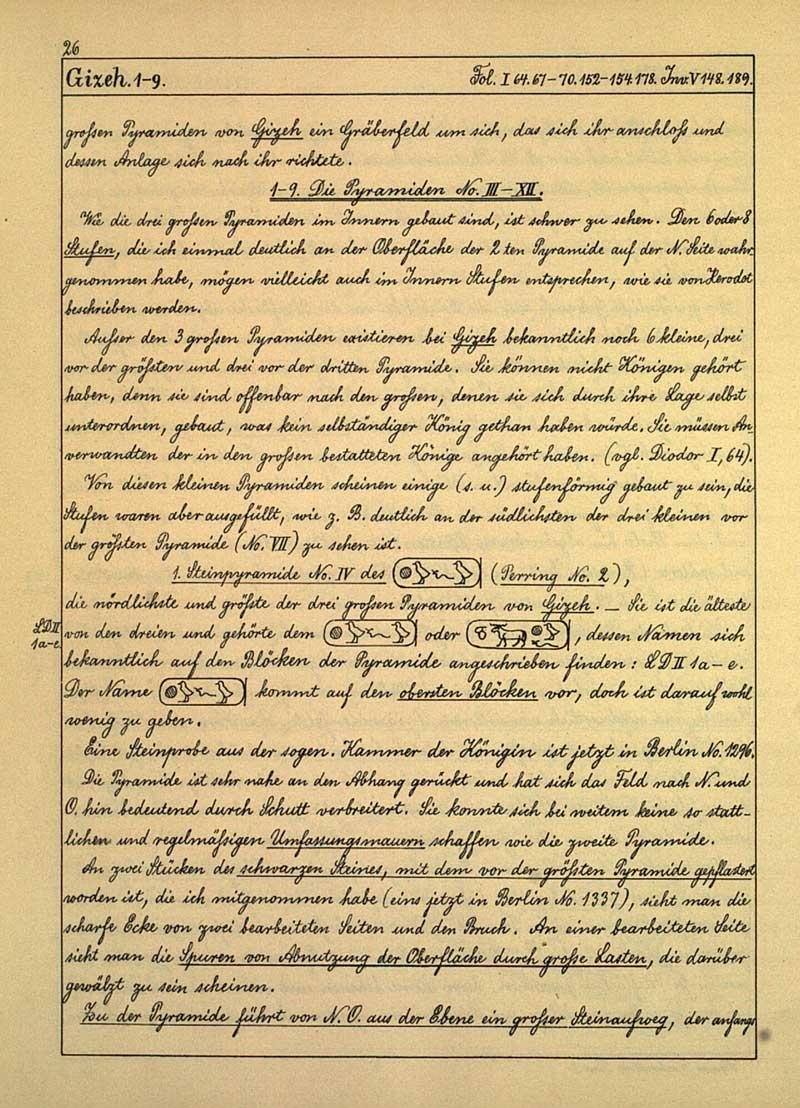 26
Gizeh. 1-9. Fol. I 64. 67-70. 152-154. 178. Inv. V 148. 189.
grossen Pyramiden von Gizeh ein Gräberfeld um sich, das sich ihr anschloss und
dessen Anlage sich nach ihr richtete.
1-9. Die Pyramiden No. III-XII.
Wie die drei grossen Pyramiden im Innern gebaut sind, ist schwer zu sehen. Den 6 oder 8
Stufen, die ich einmal deutlich an der Oberfläche der 2ten Pyramide auf der N. Seite wahr
genommen habe, mögen vielleicht auch im Innern Stufen entsprechen, wie sie von Herodot
beschrieben werden.
Ausser den 3 grossen Pyramiden existieren bei Gizeh bekanntlich noch 6 kleine, drei
vor der grössten und drei vor der dritten Pyramide. Sie können nicht Königen gehört
haben, denn sie sind offenbar nach den grossen, denen sie sich durch ihre Lage selbst
unterordnen, gebaut, was kein selbständiger König gethan haben würde. Sie müssen An
verwandten der in den grossen bestatteten Könige angehört haben. (vgl. Diodor I, 64).
Von diesen kleinen Pyramiden scheinen einige (s. u.) stufenförmig gebaut zu sein, die
Stufen waren aber ausgefüllt, wie z. B. deutlich an der südlichsten der drei kleinen vor
der grössten Pyramide (No. VII) zu sehen ist.
1. Steinpyramide No. IV des (Perring No. 2),
die nördlichste und grösste der drei grossen Pyramiden von Gizeh. — Sie ist die älteste
LD II
1a-e.
von den dreien und gehörte dem oder , dessen Namen sich
bekanntlich auf den Blöcken der Pyramide angeschrieben finden: LD II 1a-e.
Der Name kommt auf den obersten Blöcken vor, doch ist darauf wohl
wenig zu geben.
Eine Steinprobe aus der sogen. Kammer der Königin ist jetzt in Berlin No. 1296.
Die Pyramide ist sehr nahe an den Abhang gerückt und hat sich das Feld nach N. und
O. hin bedeutend durch Schutt verbreitert. Sie konnte sich bei weitem keine so statt-
lichen und regelmässigen Umfassungsmauern schaffen wie die zweite Pyramide.
An zwei Stücken des schwarzen Steines, mit dem vor der grössten Pyramide gepflastert
worden ist, die ich mitgenommen habe (eins jetzt in Berlin No. 1337), sieht man die
scharfe Ecke von zwei bearbeiteten Seiten und den Bruch. An einer bearbeiteten Seite
sieht man die Spuren von Abnutzung der Oberfläche durch grosse Lasten, die darüber
gewälzt zu sein scheinen.
Zu der Pyramide führt von N. O. aus der Ebene ein grosser Steinaufweg, der anfangs